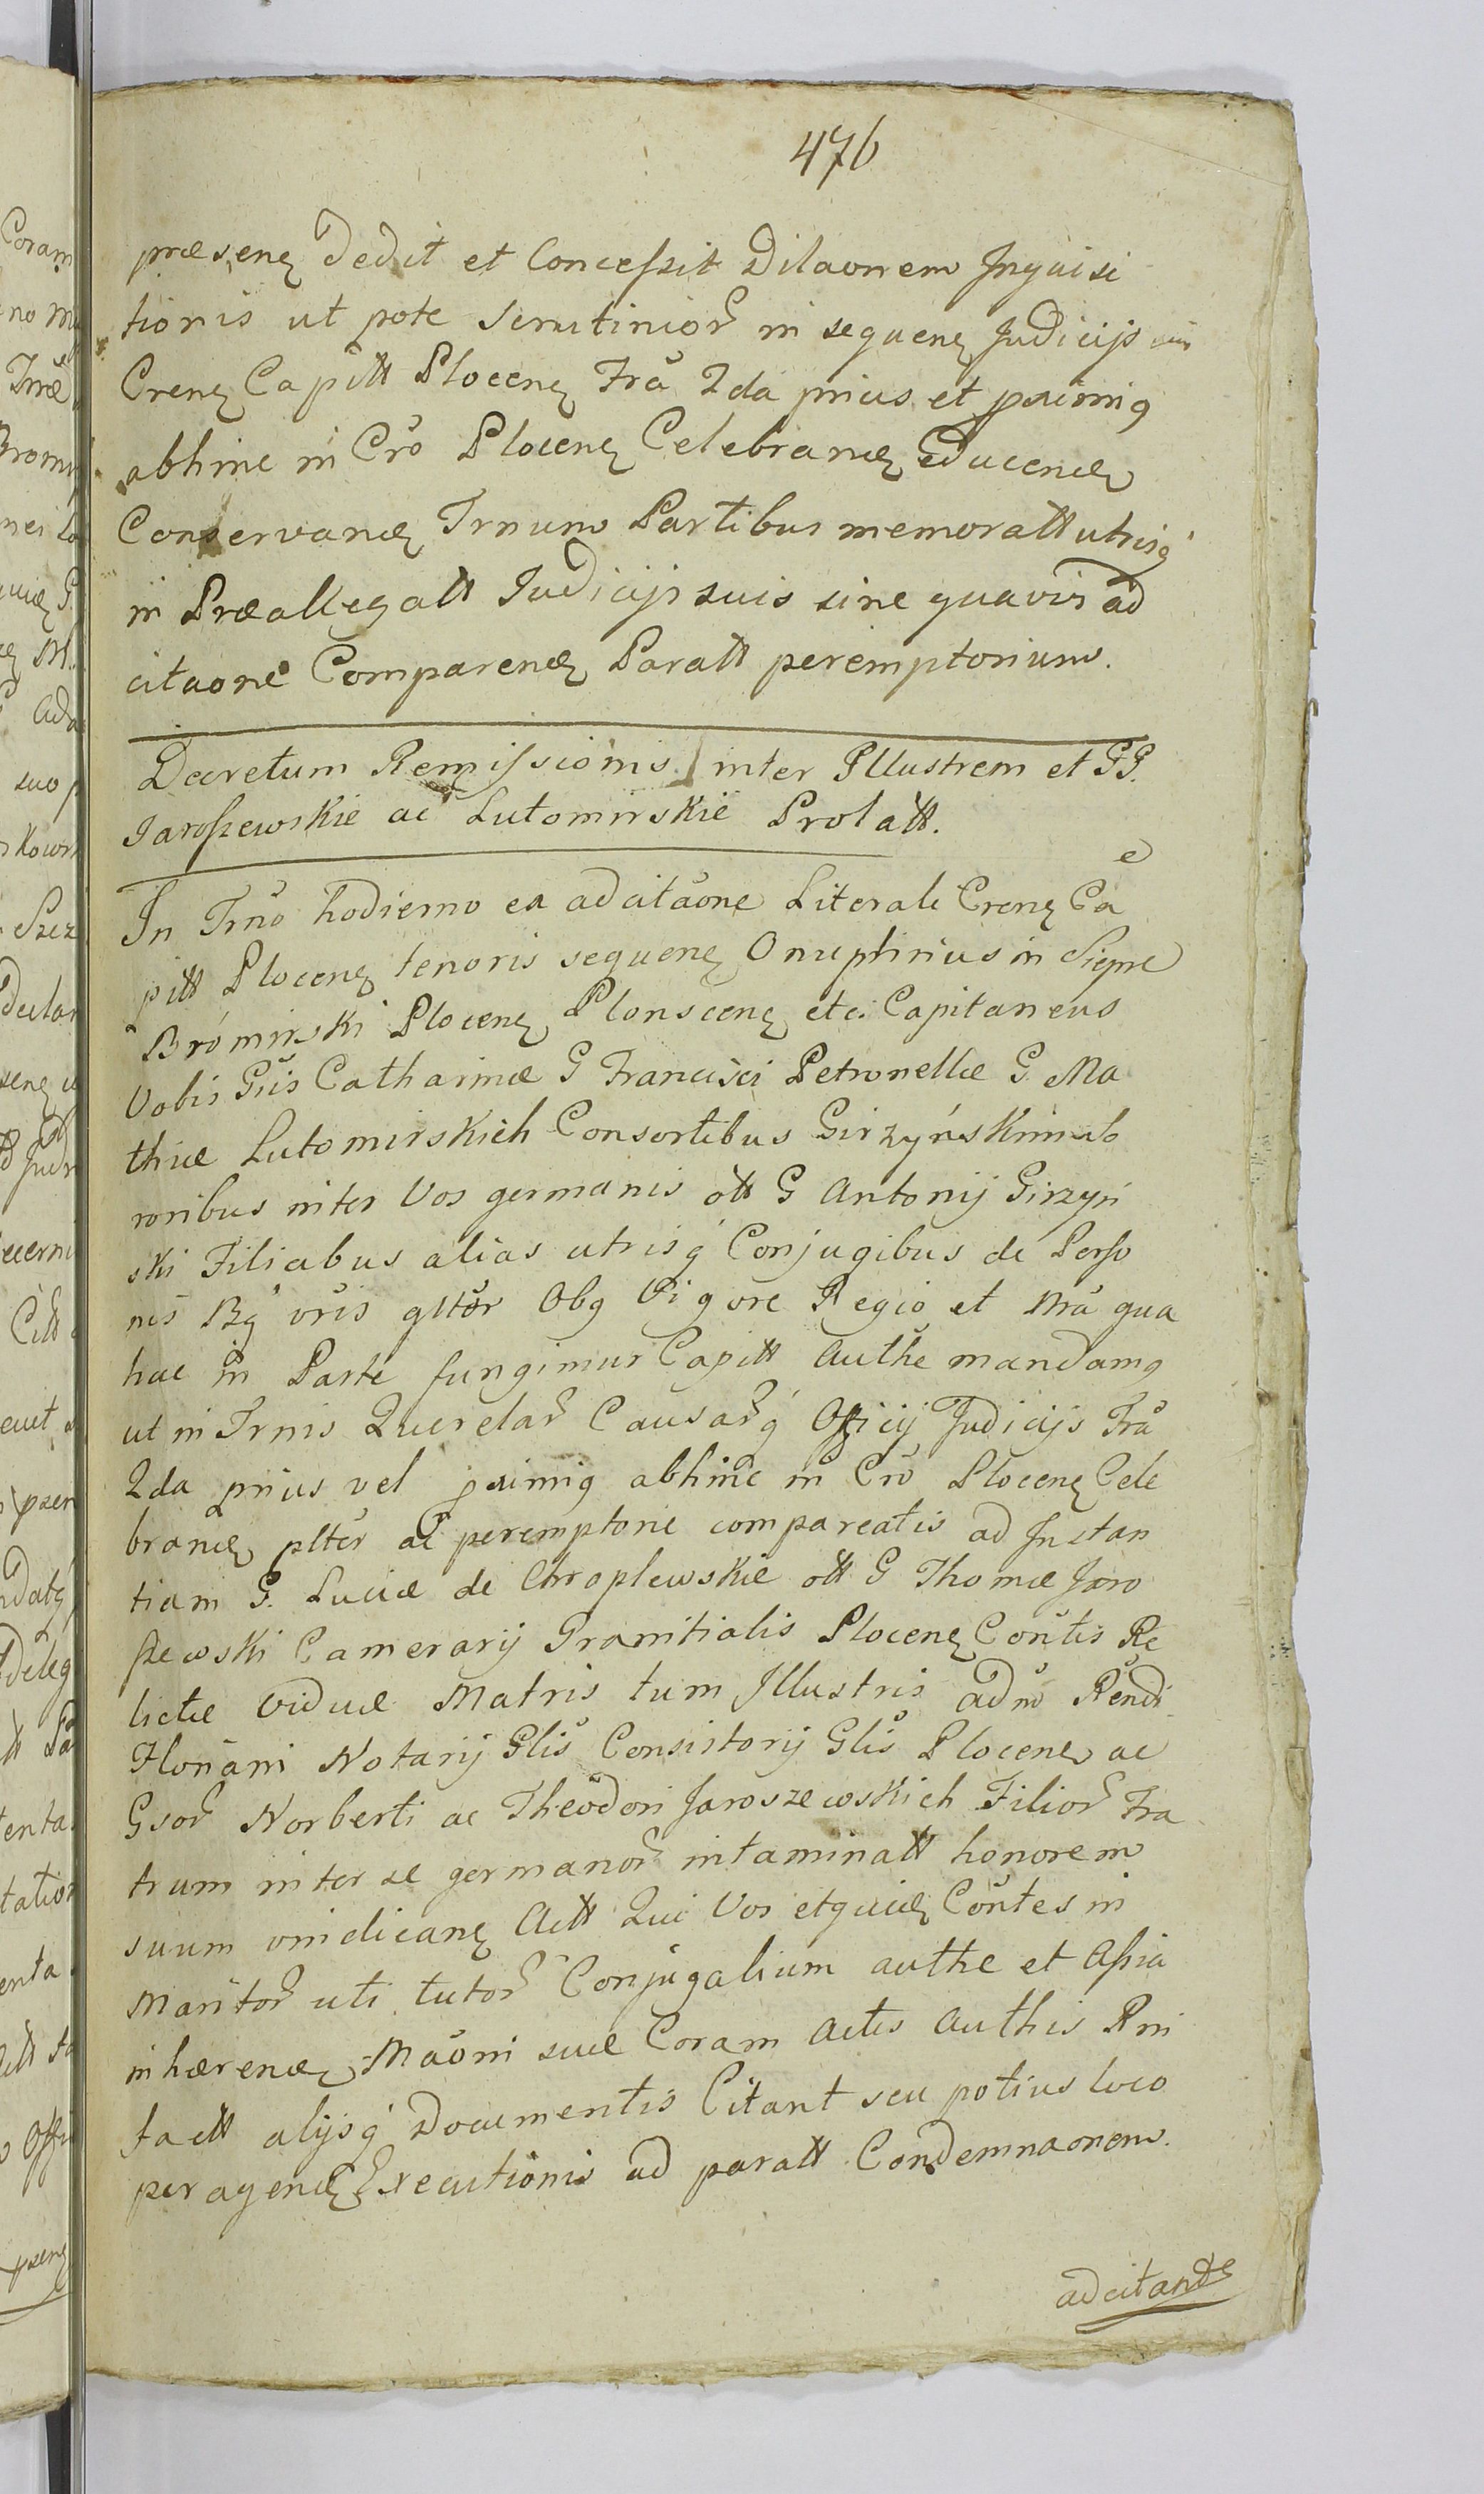 476
præsenę dedit et Concessit Dilaonem Inquisi
tionis ut pote Scrutinior in sequenę Judicijs
Crenę Capitt Plocenę Fra 2da prius et pximiq
abhinc in Cro Plocenę Celebrandę Educendę
Conservandę Trnum Partibus memoratt utrisq
in Præallegatt Judicijs suis sine quavis ad
citaone Comparendę Paratt peremptorium.
Decretum Remissionis inter Illustrem et GG.
Jaroszewskie ac Lutomirskie Prolatt.
In Trno hodierno ea adcitaone Literali Crenę Ca
pitt Plocenę tenoris sequenę Onuphrius in Siepne
Bromirski Plocenę Plonscenę etc. Capitaneus
Vobis Gsis Catharinæ G Francisci Petronellæ G. Ma
thiæ Lutomirskich Consortibus Girzyńskim So
roribus inter Vos germanis ott G Antonij Girzyń
ski Filiabus alias utrisq Conjugibus de Perso
nis Bq vris gltter Obq Vigore Regio et Nra qua
hac in Parte fungimur Capitt Authe mandamq
ut in Trnis Querelar Causarq Officij Judicijs Fra
2da prius vel pximiq abhinc in Cro Plocenę Cele
brandę plter ac peremptorie compareatis ad Instan
tiam G. Luciæ de Chroplewskie ott G Thomæ Jaro
szewski Camerarij Granitialis Plocenę Contis Re
lictæ Viduæ Matris tum Illustris adm Rendi
Floriani Notarij Glis Consistorij Glis Plocenę ac
Gsor Norberti ac Theodori Jaroszewskich Filior Fra
trum inter se germanor intaminatt honorem
suum vindicanę Actt Qui Vos etquidę Contes in
Maritor uti tutor Conjugalium authe et Assia
inhærendę Maoni suæ Coram Actis Authis Rni
factt alijsq Documentis Citant seu potius loco
peragendę Executionis ad paratt Condemnaonem.
adcitandę